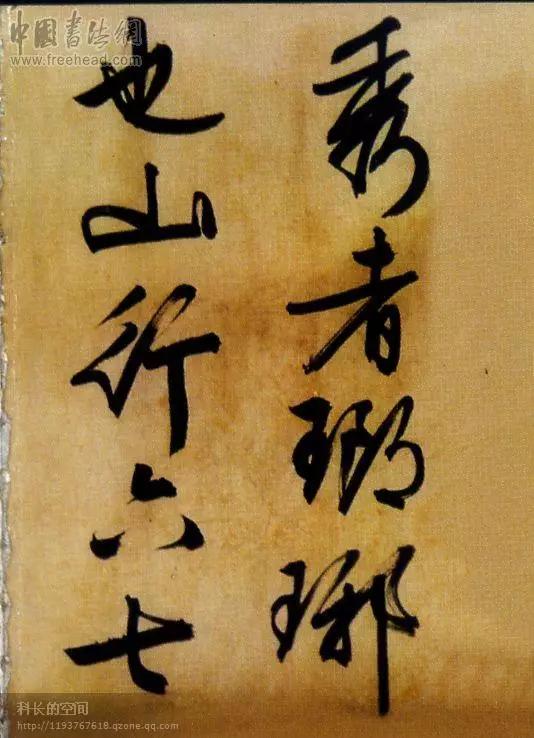 中国书法網
www.freehead.com
秀者琅琊
也山行六七
科长的空间
http://1193767618.qzone.qq.com